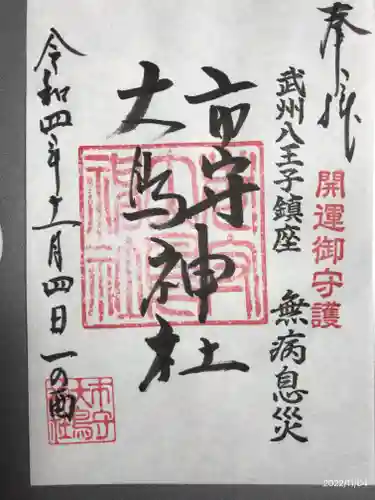 奉拝
開運御守護
武州八王子鎮座 無病息災
市守神社
大鳥
令和四年十一月四日 一の酉
市守大鳥神社
2022/11/04